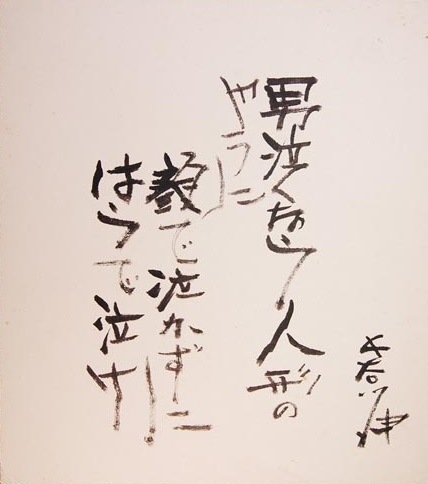 長谷川伸
男泣くなら人形の
やうに
顔で泣かずに
はらで泣け